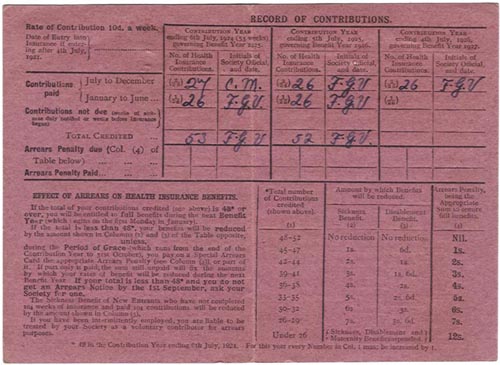 RECORD OF CONTRIBUTIONS.
Rate of Contribution 10d. a week.
Date of Entry into Insurance if entering after 4th July, 1921.
CONTRIBUTION YEAR ending 6th July, 1924 (53 weeks), governing Benefit Year 1925.
CONTRIBUTION YEAR ending 5th July, 1925, governing Benefit Year 1926.
CONTRIBUTION YEAR ending 4th July, 1926, governing Benefit Year 1927.
No. of Health Insurance Contributions. Initials of Society Official, and date. No. of Health Insurance Contributions. Initials of Society Official, and date. No. of Health Insurance Contributions. Initials of Society Official, and date.
Contributions paid
July to December 27 C.M. 26 F.G.V. 26 F.G.V.
January to June ... 26 F.G.V. 26 F.G.V.
Contributions not due
TOTAL CREDITED 53 F.G.V. 52 F.G.V.
Arrears Penalty due (Col. (4) of
Table below) ... ... ...
Arrears Penalty Paid... ...
EFFECT OF ARREARS ON HEALTH INSURANCE BENEFITS.
If the total of your contributions credited (see above) is 48* or
over, you will be entitled to full benefits during the next Benefit
Year (which begins on the first Monday in January).
If the total is less than 48*, your benefits will be reduced
by the amount shown in Columns (2) and (3) of the Table opposite,
unless,
during the Period of Grace (which runs from the end of the
Contribution Year to 31st October), you pay on a Special Arrears
Card the appropriate Arrears Penalty (see Column (4)), or part of
it. If part only is paid, the sum still unpaid will fix the amounts
by which your rates of benefit will be reduced during the next
Benefit Year. If your total is less than 48* and you do not
get an Arrears Notice by the 1st September, ask your
Society for one.
The Sickness Benefit of New Entrants who have not completed
104 weeks of insurance and paid 104 contributions will be reduced
by the amount shown in Column (3).
If you have been intermittently employed, you are liable to be
treated by your Society as a voluntary contributor for arrears
purposes.
*Total number of Contributions credited (shown above). (1)
Amount by which Benefits will be reduced.
Sickness Benefit. (2)
Disablement Benefit. (3)
Arrears Penalty, being the Appropriate Sum to secure full benefits. (4)
48-52 No reduction No reduction. Nil.
45-47 1s. 6d. 1s.
42-44 2s. 1s. 2s.
39-41 3s. 1s. 6d. 3s.
36-38 4s. 2s. 4s.
33-35 5s. 2s. 6d. 5s.
30-32 6s. 3s. 6s.
26-29 7s. 3s. 6d. 7s.
Under 26 Sickness, Disablement and Maternity Benefits suspended. 12s.
* 49 in the Contribution Year ending 6th July, 1924. For this year every Number in Col. 1 must be increased by 1.